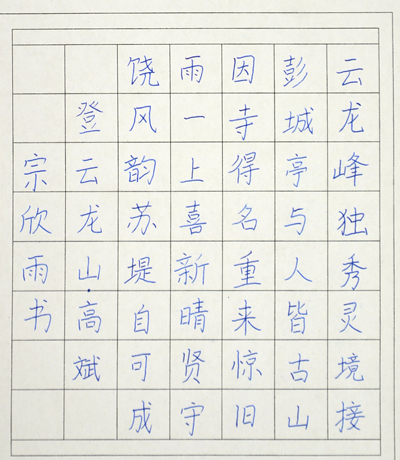 云龙峰独秀灵境接
彭城亭与人皆古山
因寺得名重来惊旧
雨一上喜新晴贤守
饶风韵苏堤自可成
登云龙山·高斌
宗欣雨书